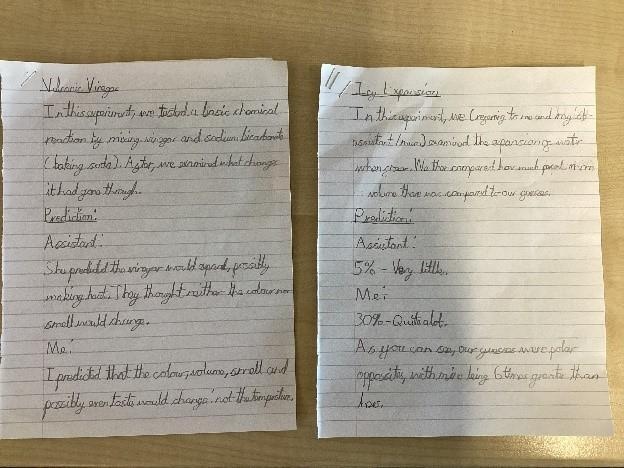 Volcanic Vinegar
In this experiment, we tested a basic chemical
reaction by mixing vinegar and sodium bicarbonate
(baking soda). After, we examined what change
it had gone through.
Prediction:
Assistant:
She predicted the vinegar would expand, possibly
making heat. They thought neither the colour nor
smell would change.
Me:
I predicted that the colour, volume, smell and
possibly even taste would change: not the temperature.
Icy Expansion
In this experiment, we (referring to me and my
assistant (mum) examined the expansion of water
when froze. We then compared how much
volume there was compared to our guesses.
Prediction:
Assistant:
5% - Very little.
Me:
30% - Quite alot.
As you can see, our guesses were polar
opposites, with mine being 6 times greater than
hers.